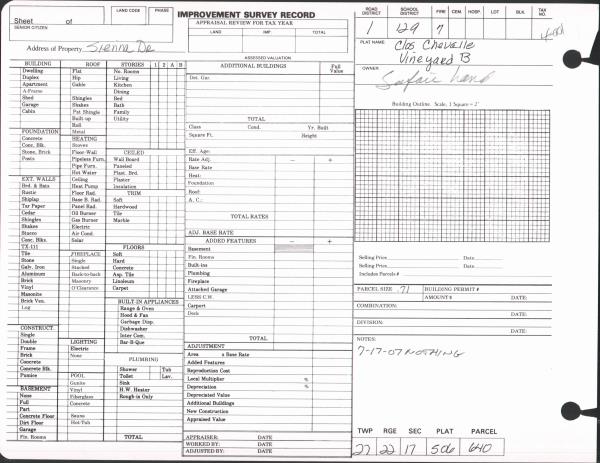 Sheet of
SENIOR CITIZEN
LAND CODE PHASE
IMPROVEMENT SURVEY RECORD
APPRAISAL REVIEW FOR TAX YEAR
LAND IMP. TOTAL
Address of Property Sienna Dr
ROAD DISTRICT SCHOOL DISTRICT FIRE CEM. HOSP. LOT BLK. TAX NO.
1 129 7
PLAT NAME: Clos Chevalle
Vineyard B
OWNER
ASSESSED VALUATION
BUILDING ROOF STORIES 1 2 A B
Dwelling Flat No. Rooms
Duplex Hip Living
Apartment Gable Kitchen
A-Frame Dining
Shed Shingles Bed
Garage Shakes Bath
Cabin Pat Shingle Family
Built-up Utility
Roll
FOUNDATION Metal
Concrete HEATING
Conc. Blk. Stoves CEILED
Stone, Brick Floor-Wall Wall Board
Posts Pipeless Furn. Paneled
Pipe Furn. Plast. Brd.
Hot Water Plaster
EXT. WALLS Ceiling Insulation
Brd. & Bats Heat Pump TRIM
Rustic Floor Rad. Soft
Shiplap Base B. Rad. Hardwood
Tar Paper Panel Rad. Tile
Cedar Oil Burner Marble
Shingles Gas Burner
Shakes Electric
Stucco Air Cond.
Conc. Blks. Solar FLOORS
TX-111 FIREPLACE Soft
Tile Single Hard
Stone Stacked Concrete
Galv. Iron Back-to-back Asp. Tile
Aluminum Masonry Linoleum
Brick O'Clearance Carpet
Vinyl
Masonite
Brick Ven. BUILT-IN APPLIANCES
Log Range & Oven
Hood & Fan
Garbage Disp.
CONSTRUCT. Dishwasher
Single Inter Com.
Double LIGHTING Bar-B-Que
Frame Electric
Brick None PLUMBING
Concrete Shower Tub
Concrete Blk. Toilet Lav.
Pumice POOL Sink
BASEMENT Gunite H.W. Heater
None Vinyl Rough-in Only
Full Fiberglass
Part Concrete
Concrete Floor Sauna
Dirt Floor Hot-Tub
Fin. Rooms TOTAL
ADDITIONAL BUILDINGS Full Value
Det. Gar.
TOTAL
Class Cond. Yr. Built
Square Ft. Height
Eff. Age:
Rate Adj. − +
Base Rate
Heat:
Foundation
Roof:
A. C.:
TOTAL RATES
ADJ. BASE RATE
ADDED FEATURES − +
Basement
Fin. Rooms
Built-ins
Plumbing
Fireplace
Attached Garage
LESS C.W.
Carport
Deck
TOTAL
ADJUSTMENT
Area x Base Rate
Added Features
Reproduction Cost
Local Multiplier %
Depreciation %
Depreciated Value
Additional Buildings
New Construction
Appraised Value
APPRAISER: DATE
WORKED BY: DATE
ADJUSTED BY: DATE
Building Outline. Scale, 1 Square = 2'
Selling Price Date
Selling Price Date
Includes Parcels #
PARCEL SIZE .71 BUILDING PERMIT #
AMOUNT $ DATE:
COMBINATION: DATE:
DIVISION: DATE:
NOTES:
7-17-07 NOTHING
TWP RGE SEC PLAT PARCEL
27 22 17 506 640